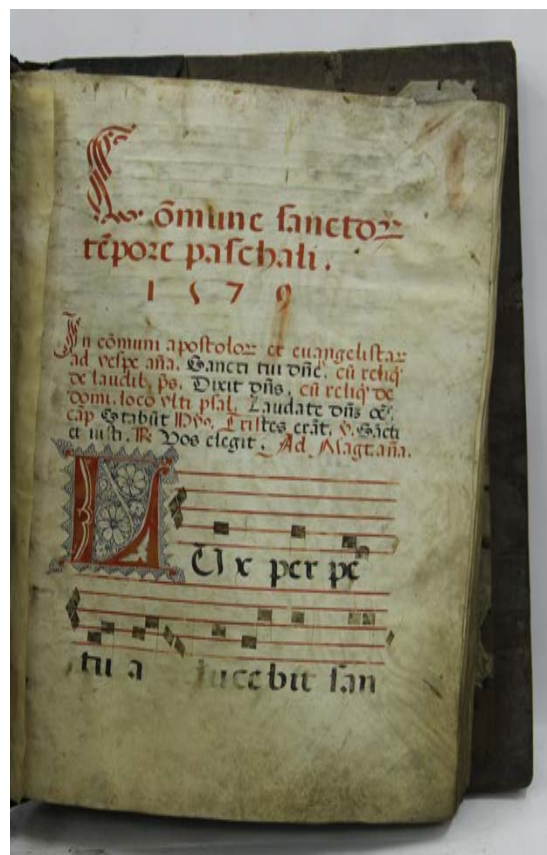 Cōmune sanctoꝝ
tēpore paschali.
1579
In cōmuni apostoloꝝ et euangelistaꝝ
ad vesꝑe aña. Sancti tui dñe, cū reliq̃
de laudib, ps. Dixit dñs, cū reliq̃ de
domi. loco vlti psal. Laudate dñs oẽs.
cāp Stabūt Hyṽ. Tristes erāt. ꝟ. Sācti
et iusti. ℟. Vos elegit. Ad Magt. aña.
LUx per pe
tu a lucebit san